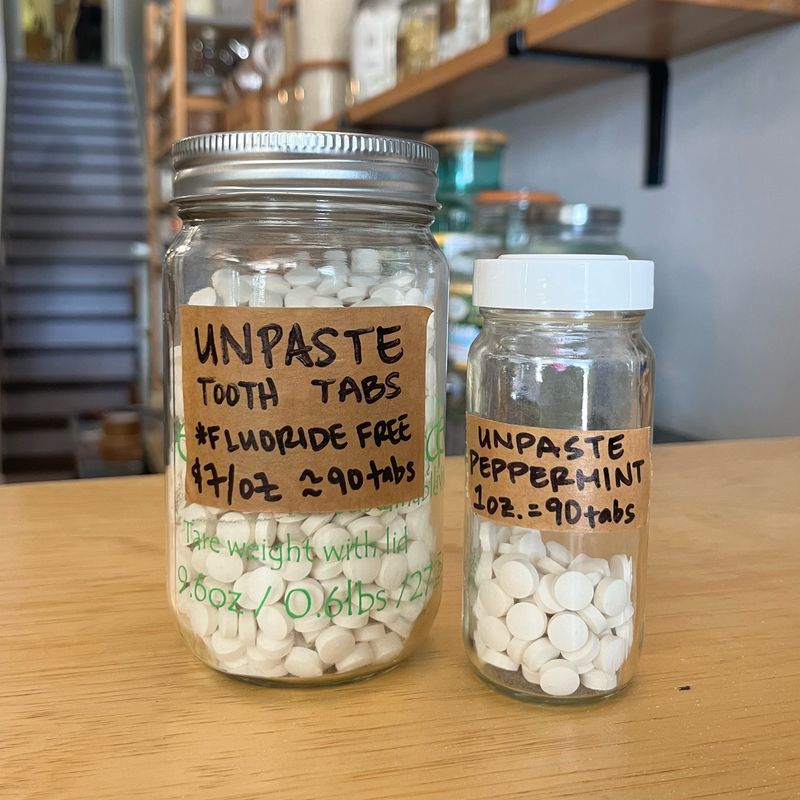 UNPASTE
TOOTH TABS
*FLUORIDE FREE
$7/oz ≈90tabs
Tare weight with lid
9.6oz / 0.6lbs /27
UNPASTE
PEPPERMINT
1oz.=90tabs